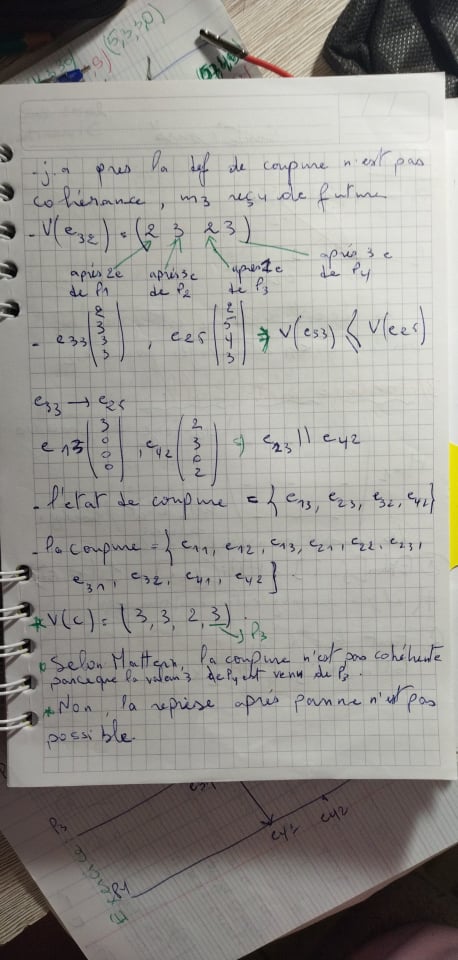 (5,3,3,0)
- j. a pres la def de coupure n'est pas
cohérance, m3 reçu de future
- V(e32) = (2 3 2 3)
après 2e de P1
après 3e de P2
après 2e de P3
après 3 e de P4
- e33 (2 3 3 3), e25 (2 5 4 3) ⇒ V(e33) < V(e25)
e33 → e25
e13 (3 0 0 0), e42 (2 3 0 2) ⇒ e23 || e42
- l'état de coupure = { e13, e23, e32, e42}
- la coupure = { e11, e12, e13, e21, e22, e23,
e31, e32, e41, e42}
* V(c) = (3, 3, 2, 3).
P3
Selon Mattern, la coupure n'est pas cohérente
parceque la valeur 3 de P4 est venu de P3.
* Non, la reprise après panne n'est pas
possible.
P3
e41
e42
P4